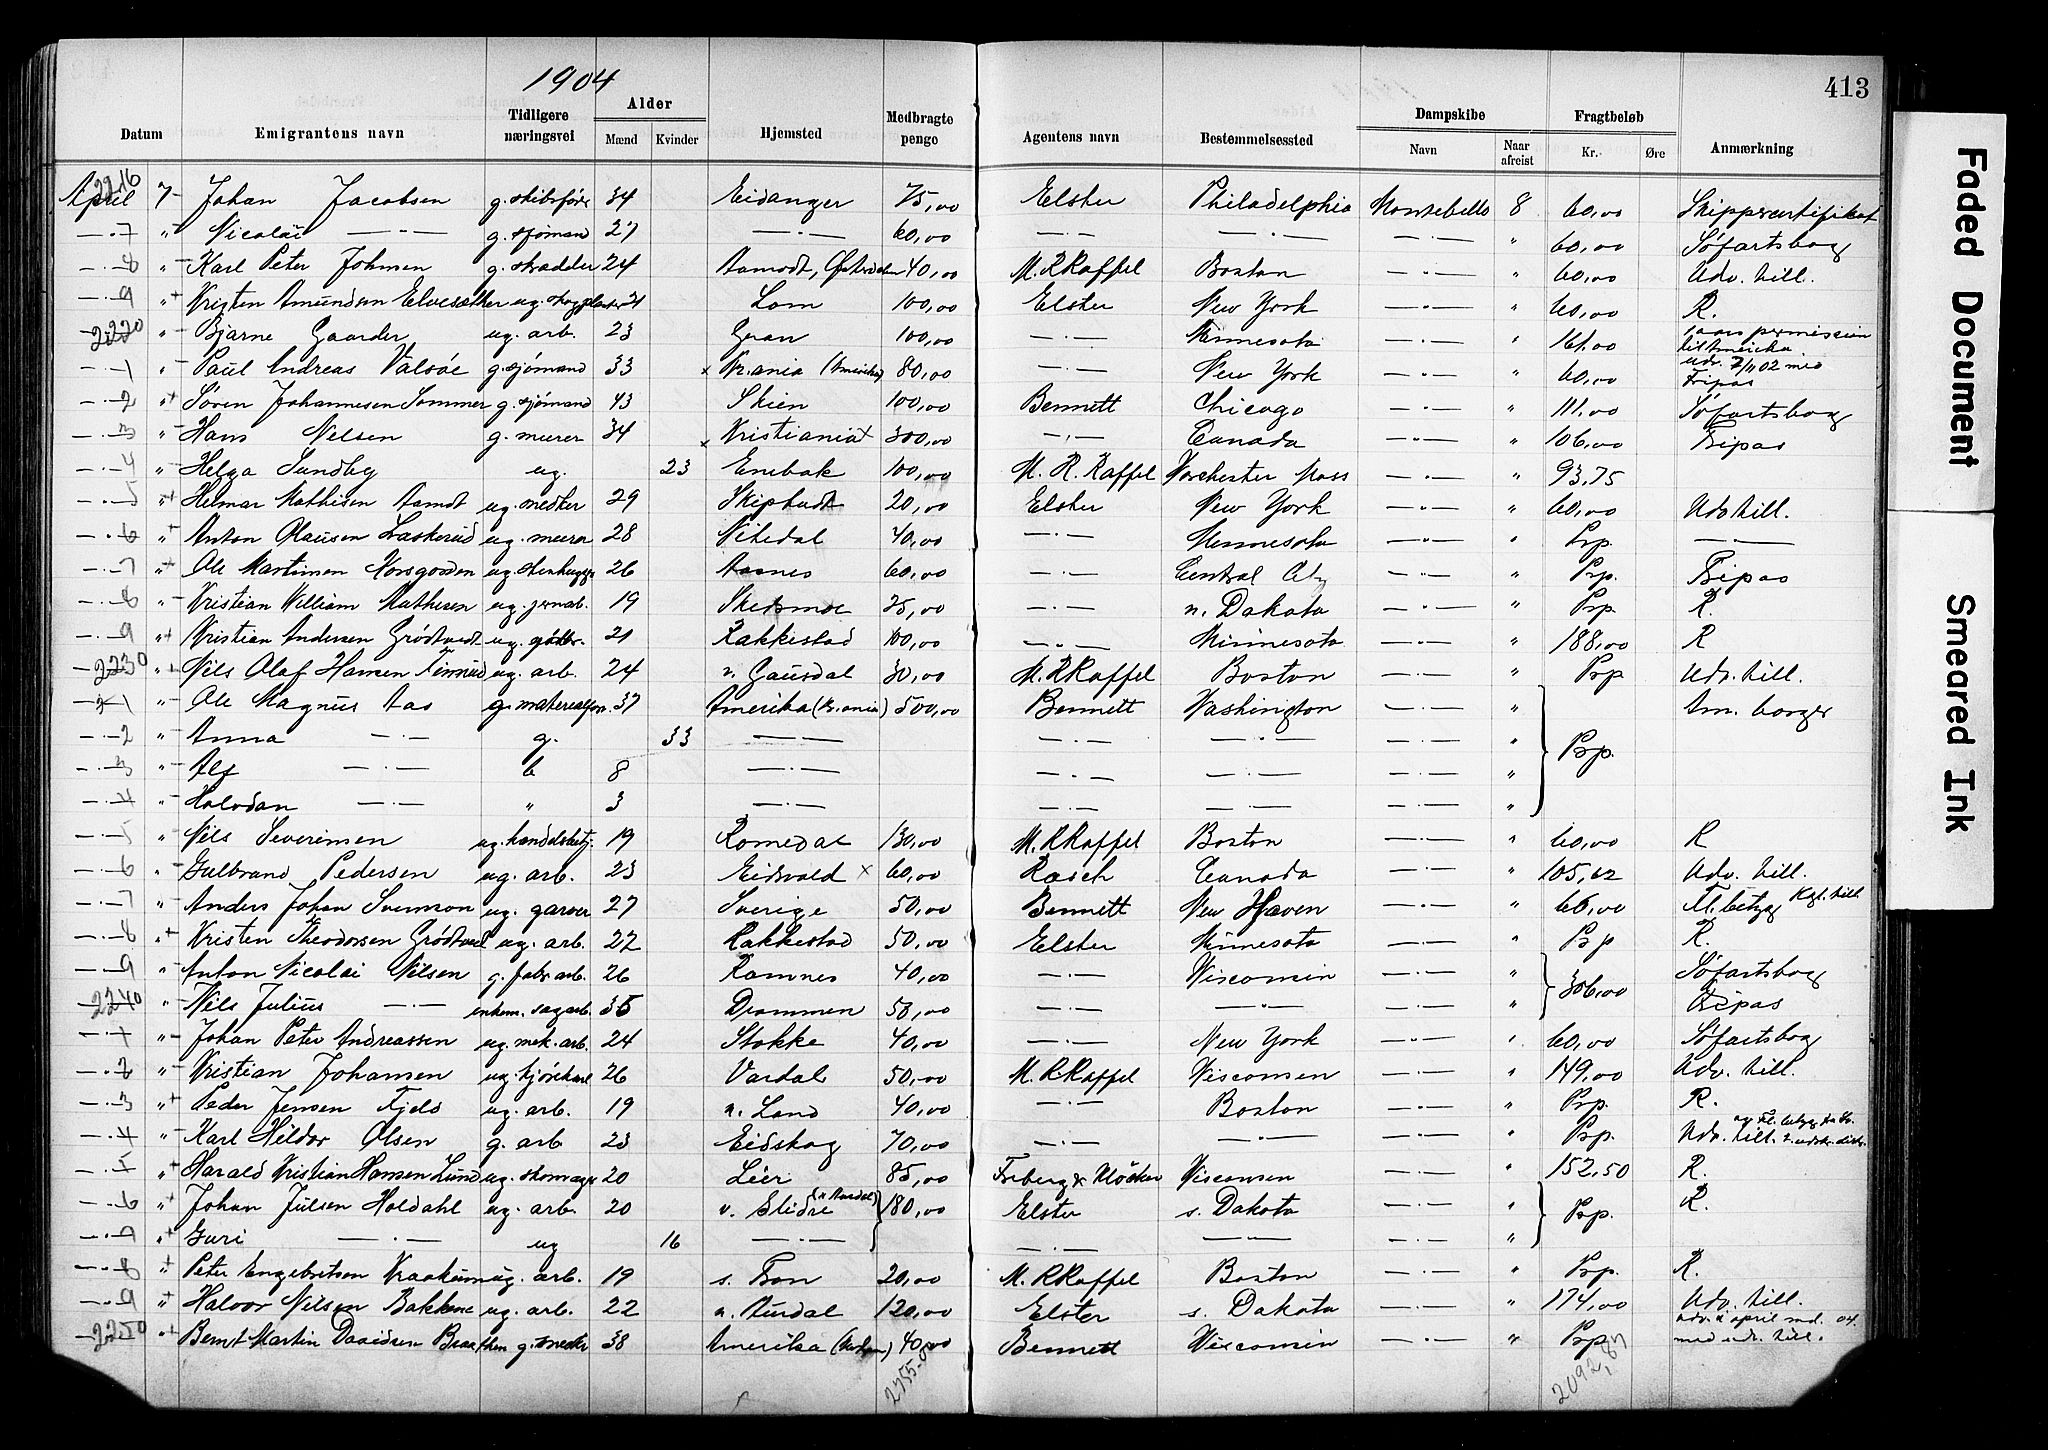 1904
413
Datum Emigrantens navn Tidligere næringsvei Alder Mænd Kvinder Hjemsted Medbragte penge Agentens navn Bestemmelsessted Dampskibe Navn Naar afreist Fragtbeløb Kr. Øre Anmærkning
2216 April 7 Johan Jacobsen g. skibsfører 34 Eidanger 75,00 Elster Philadelphia Montebello 8 60,00 Skippercertifikat
-.-7 " Nicolai -"- g. sjømand 27 -.- 60,00 -.- -.- -.- " 60,00 Søfartsbog
-.-8 " Karl Peter Johnsen g. skrædder 24 Aamodt, 40,00 M. R Raffel Boston -.- " 60,00 Udv. till.
-.-9 " Kristen Amundsen Elvesæther ug. 21 Lom 100,00 Elster New York -.- " 60,00 R.
2220 " Bjarne Gaarder ug. arb. 23 Gran 100,00 -.- Minnesota -.- " 161.00 1 aars permission til Amerika
-.-1 " Paul Andreas Valsøe g. sjømand 33 x Kr.ania (Amerika) 80,00 -.- New York -.- " 60,00 udv. 7/11 02 med Fripas
-.-2 " Søren Johannesen Sommer g. sjømand 43 Skien 100,00 Bennett Chicago -.- " 111.00 Søfartsbog
-.-3 " Hans Nelsen g. murer 34 x Kristiania 300,00 -.- Canada -"- " 106,00 Fripas
-.-4 " Helga Sundby ug. 23 Enebak 100,00 M. R. Raffel Worchester Mass -.- " 93,75
-.-5 " Helmar Mathisen Aamodt ug. snedker 29 Skiptvedt 20,00 Elster New York -"- " 60,00 Udv till.
-.-6 " Anton Olausen Laskerud ug. murer 28 Nitedal 40,00 -.- Minnesota -.- " Prp. -.-
-.-7 " Ole Martinsen Korsgården ug. stenhugger 26 Aasnes 60,00 -.- Central City -"- " Prp. Fripas
-.-8 " Kristian William Mathisen ug. jernarb. 19 Skedsmoe 25,00 -.- n. Dakota -"- " Prp R.
-.-9 " Kristian Andersen Grødtvedt ug. 21 Rakkestad 100,00 -.- Minnesota -"- " 188,00 R
2230 " Nils Olaf Hansen ug. arb. 24 n. Gausdal 30,00 M. R Raffel Boston -"- " Prp Udv. till.
-.-1 " Ole Magnus Aas g. 37 Amerika (Kr.ania) 500,00 Bennett Washington -.- " Am. borger
-.-2 " Anna -.- g. 33 -.- -.- -.- -.- " Prp.
-.-3 " Alf -.- b 8 -.- -.- -.- -.- "
-.-4 " Halvdan -.- " 3 -.- -.- -.- -.- "
-.-5 " Nils Severinsen ug. handelsbetj. 19 Romedal 130,00 M. R Raffel Boston -.- " 60,00 R
-.-6 " Gulbrand Pedersen ug. arb. 23 Eidsvold x 60,00 Rasch Canada -.- " 105,62 Udv. till.
-.-7 " Anders Johan Svensson ug. garver 27 Sverige 50,00 Bennett New Haven -.- " 66,00 Fl. betyg Kgl. till.
-.-8 " Kristen Theodorsen Grødtved ug. arb. 22 Rakkestad 50,00 Elster Minnesota -.- " Prp R.
-.-9 " Anton Nicolai Nilsen g. fabr arb. 26 Ramnes 40,00 -.- Wisconsin -.- " 306,00 Søfartsbog
2240 " Nils Julius -.- enkem. sagarb. 35 Drammen 50,00 -.- -"- -.- " Fripas
-.-1 " Johan Peter Andreassen ug. mek. arb. 24 Stokke 40,00 -.- New York -"- " 60,00 Søfartsbog
-.-2 " Kristian Johansen ug. kjørekarl 26 Vardal 50,00 M. R. Raffel Wisconsin -.- " 149,00 Udv. till.
-.-3 " Peder Jensen Fjeld ug. arb. 19 n. Land 40,00 -.- Boston -.- " Prp. R.
-.-4 " Karl Hildor Olsen g. arb 23 Eidskog 70,00 -.- -.- -.- " Prp. Udv. till.
-.-5 " Harald Kristian Hansen Lund ug. skomager 20 Lier 85,00 Friberg & Klöcker Wisconsin -.- " 152,50 R.
-.-6 " Johan Julsen Holdahl ug. arb. 20 v. Slidre (n Aurdal) 180,00 Elster s. Dakota -.- " Prp. R.
" Guri -.- ug 16 -.- -.- -"- -.- "
-.-8 " Peter Engebretsen Kraakum ug. arb. 19 s. Fron 20,00 M. R Raffel Boston -.- " Prp. R.
-.-9 " Halvor Nilsen Bakkene ug. arb. 22 n. Aurdal 120,00 Elster s. Dakota -.- " 174,00 Udv. till.
2250 " Bernt Martin Davidsen Braathen g. snedker 38 Amerika 40,00 Bennett Wisconsin -.- " Prp udv. i april md. 04 med udv. till.
2755-
2092,87
Faded Document
Smeared Ink